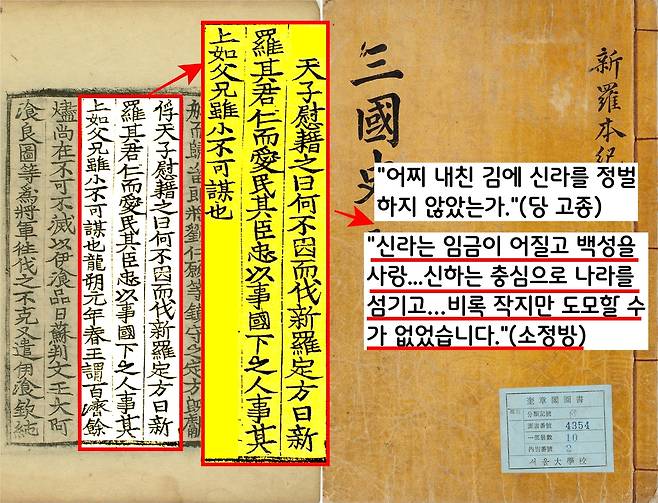 天子慰藉之曰何不因而伐新羅定方曰新
羅其君仁而愛民其臣忠以事國下之人事其
上如父兄雖小不可謀也
俘天子慰藉之曰何不因而伐新羅定方曰新
羅其君仁而愛民其臣忠以事國下之人事其
上如父兄雖小不可謀也龍朔元年春王謂百濟餘
燼尚在不可不滅以伊飡品日蘇判文王大阿
飡良圖等爲將軍徃伐之不克又遣伊飡欽純
新羅本紀
三國史
"어찌 내친 김에 신라를 정벌
하지 않았는가."(당 고종)
"신라는 임금이 어질고 백성을
사랑...신하는 충심으로 나라를
섬기고...비록 작지만 도모할 수
가 없었습니다."(소정방)
奎章閣圖書
分類記號
圖書番號 4354
一部冊數 10
內別番號 2
서울大學校